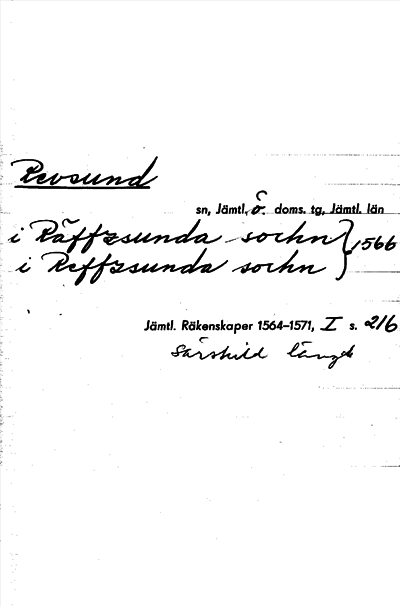 Revsund
sn, Jämtl. ö. doms. tg, Jämtl. län
i Räffzsunda sochn } 1566
i Reffzsunda sochn
Jämtl. Räkenskaper 1564–1571, I s. 216
Särskild längd